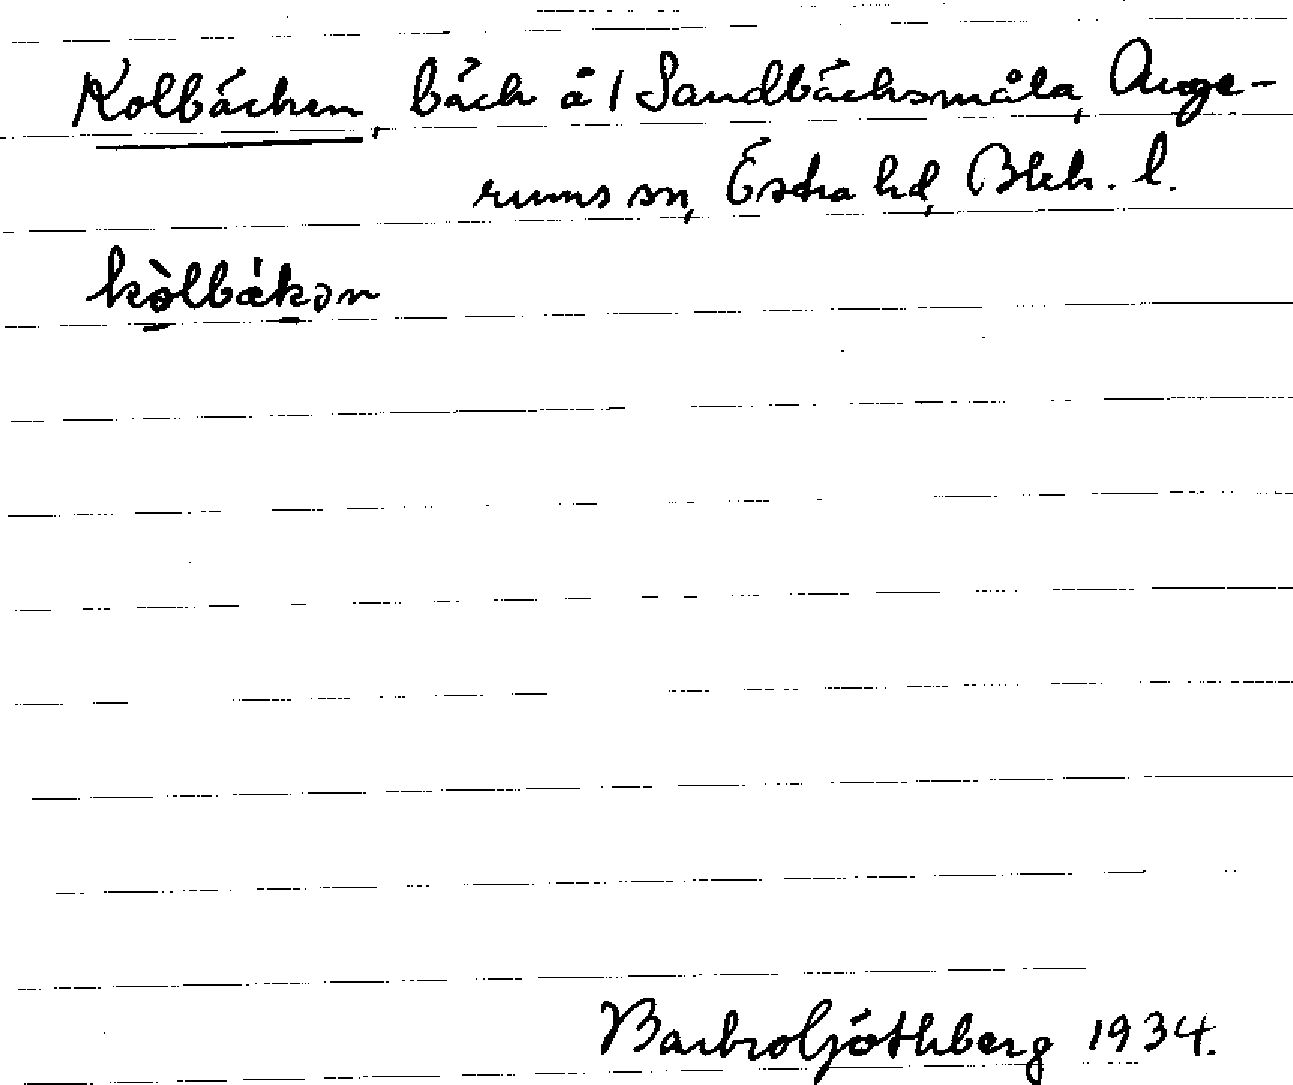 Kolbäcken, bäck å 1 Sandbäcksmåla, Auge-
rums sn, Östra hd, Blek. l.
kòlbǽkən
Barbro Göthberg 1934.